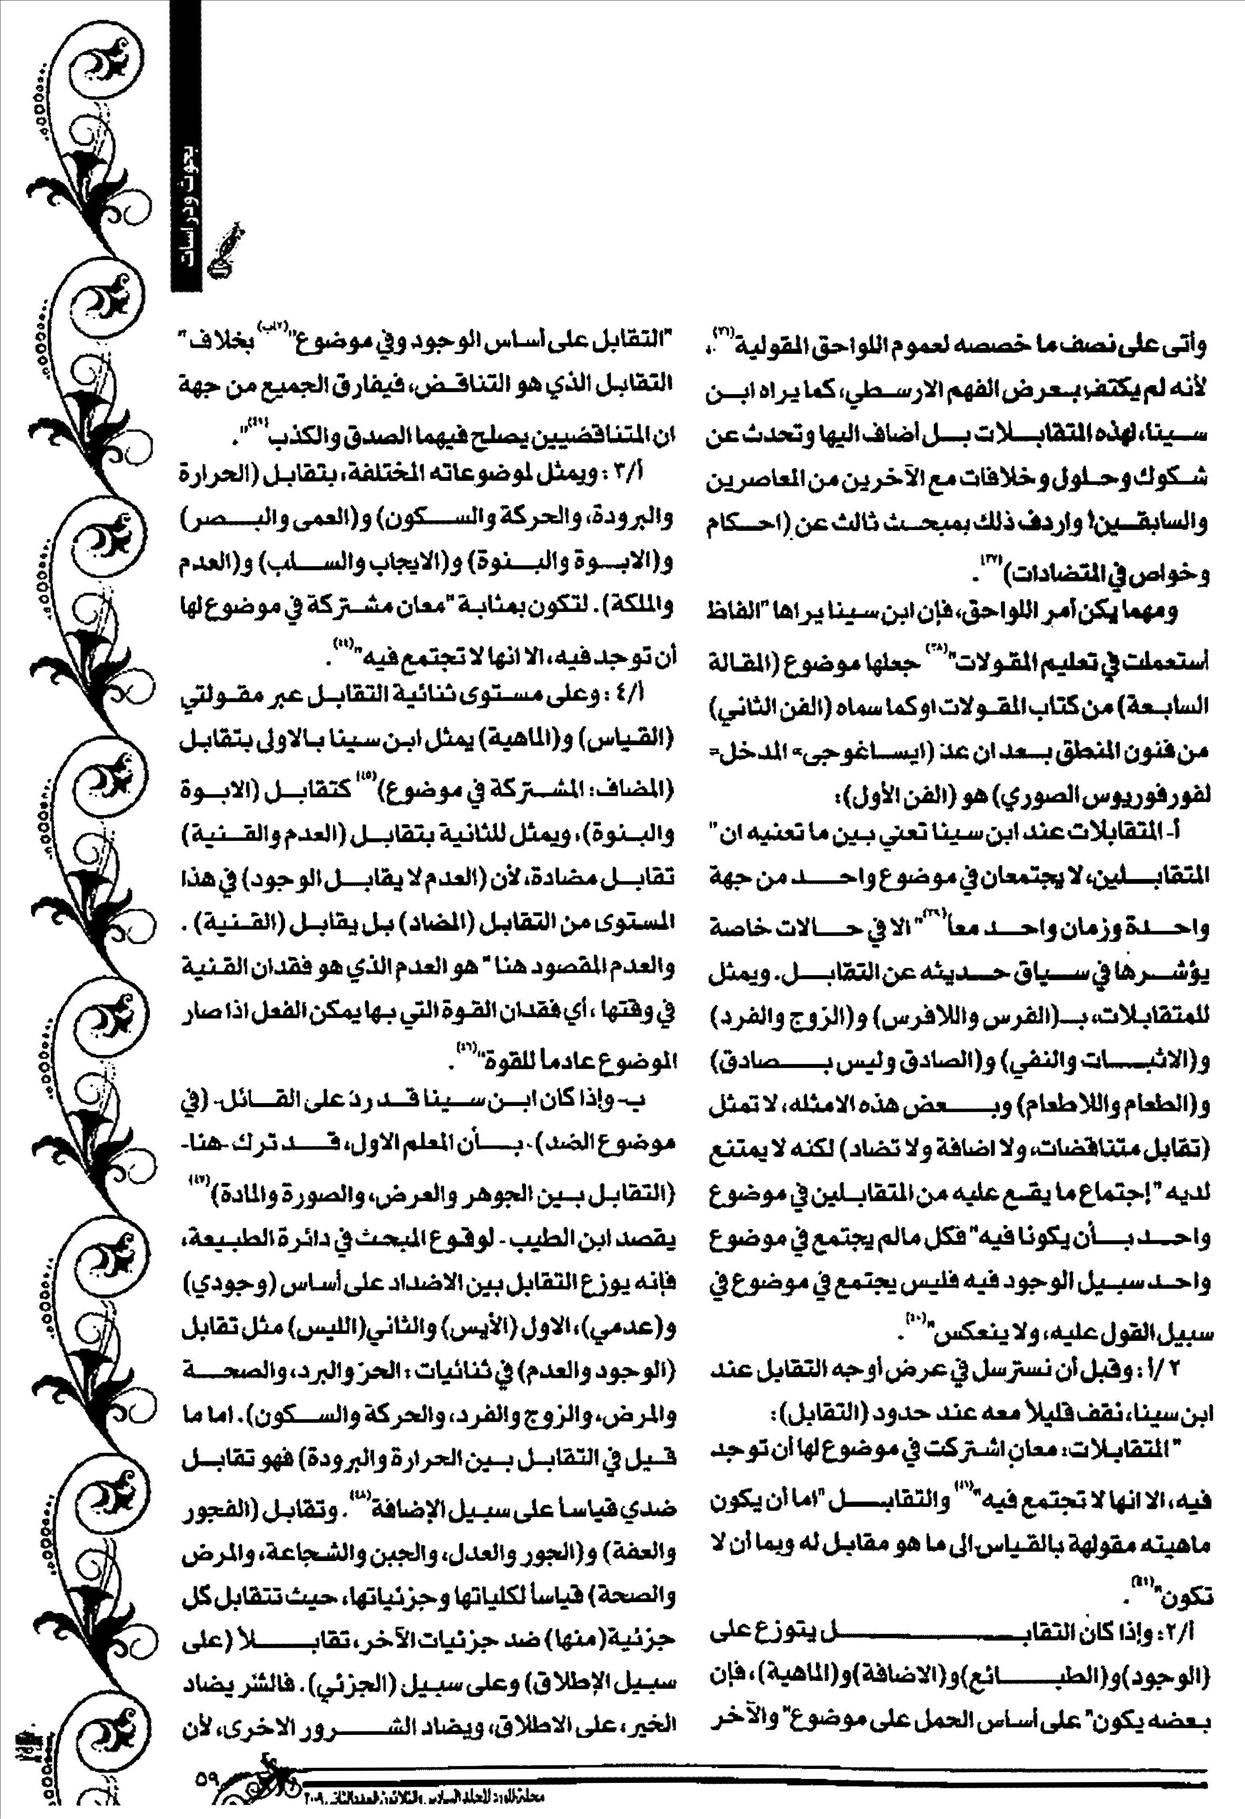 بحوث ودراسات
وأتى على نصف ما خصصه لعموم اللواحق المقولية(٣٦)،
لأنه لم يكتف بعرض الفهم الارسطي، كما يراه ابن
سينا، لهذه المتقابلات بل أضاف اليها وتحدث عن
شكوك وحلول وخلافات مع الآخرين من المعاصرين
والسابقين! واردف ذلك بمبحث ثالث عن (احكام
وخواص في المتضادات)(٣٧).
ومهما يكن أمر اللواحق، فإن ابن سينا يراها "الفاظ
أستعملت في تعليم المقولات"(٣٨) جعلها موضوع (المقالة
السابعة) من كتاب المقولات او كما سماه (الفن الثاني)
من فنون المنطق بعد ان عدّ (ايساغوجى= المدخل=
لفورفوريوس الصوري) هو (الفن الأول):
أ- المتقابلات عند ابن سينا تعني بين ما تعنيه ان "
المتقابلين، لا يجتمعان في موضوع واحد من جهة
واحدة وزمان واحد معاً(٣٩)" الا في حالات خاصة
يؤشرها في سياق حديثه عن التقابل. ويمثل
للمتقابلات، بـ(الفرس واللافرس) و(الزوج والفرد)
و(الاثبات والنفي) و(الصادق وليس بصادق)
و(الطعام واللاطعام) وبعض هذه الامثله، لا تمثل
(تقابل متناقضات، ولا اضافة ولا تضاد) لكنه لا يمتنع
لديه "إجتماع ما يقع عليه من المتقابلين في موضوع
واحد بأن يكونا فيه" فكل مالم يجتمع في موضوع
واحد سبيل الوجود فيه فليس يجتمع في موضوع في
سبيل القول عليه، ولا ينعكس"(٤٠).
٢/أ: وقبل أن نسترسل في عرض أوجه التقابل عند
ابن سينا، نقف قليلاً معه عند حدود (التقابل):
"المتقابلات: معانٍ اشتركت في موضوع لها أن توجد
فيه، الا انها لا تجتمع فيه"(٤١) والتقابل "اما أن يكون
ماهيته مقولهة بالقياس الى ما هو مقابل له وبما أن لا
تكون"(٤٢).
أ/٢: وإذا كان التقابل يتوزع على
(الوجود)و(الطبائع)و(الاضافة)و(الماهية)، فإن
بعضه يكون" على أساس الحمل على موضوع" والآخر
"التقابل على أساس الوجود وفي موضوع"(٢/ب) بخلاف"
التقابل الذي هو التناقض، فيفارق الجميع من جهة
ان المتناقضيين يصلح فيهما الصدق والكذب(٤٣)".
أ/٣: ويمثل لموضوعاته المختلفة، بتقابل (الحرارة
والبرودة، والحركة والسكون) و(العمى والبصر)
و(الابوة والبنوة) و(الايجاب والسلب) و(العدم
والملكة). لتكون بمثابة "معان مشتركة في موضوع لها
أن توجد فيه، الا انها لا تجتمع فيه"(٤٤).
أ/٤: وعلى مستوى ثنائية التقابل عبر مقولتي
(القياس) و(الماهية) يمثل ابن سينا بالاولى بتقابل
(المضاف: المشتركة في موضوع)(٤٥) كتقابل (الابوة
والبنوة)، ويمثل للثانية بتقابل (العدم والقنية)
تقابل مضادة، لأن (العدم لا يقابل الوجود) في هذا
المستوى من التقابل (المضاد) بل يقابل (القنية).
والعدم المقصود هنا "هو العدم الذي هو فقدان القنية
في وقتها، أي فقدان القوة التي بها يمكن الفعل اذا صار
الموضوع عادماً للقوة"(٤٦).
ب- وإذا كان ابن سينا قد ردّ على القائل- (في
موضوع الضد)- بأن المعلم الاول، قد ترك -هنا-
(التقابل بين الجوهر والعرض، والصورة والمادة)(٤٧)
يقصد ابن الطيب- لوقوع المبحث في دائرة الطبيعة،
فإنه يوزع التقابل بين الاضداد على أساس (وجودي)
و(عدمي)، الاول (الأيس) والثاني(الليس) مثل تقابل
(الوجود والعدم) في ثنائيات: الحرّ والبرد، والصحة
والمرض، والزوج والفرد، والحركة والسكون). اما ما
قيل في التقابل بين الحرارة والبرودة) فهو تقابل
ضدي قياساً على سبيل الإضافة(٤٨). وتقابل (الفجور
والعفة) و(الجور والعدل، والجبن والشجاعة، والمرض
والصحة) قياساً لكلياتها وجزئياتها، حيث تتقابل كل
جزئية(منها) ضد جزئيات الآخر، تقابلاً (على
سبيل الإطلاق) وعلى سبيل (الجزئي). فالشر يضاد
الخير، على الاطلاق، ويضاد الشرور الاخرى، لأن
٥٩
مجلة المورد المجلد السادس والثلاثون العدد الثاني ٢٠٠٩